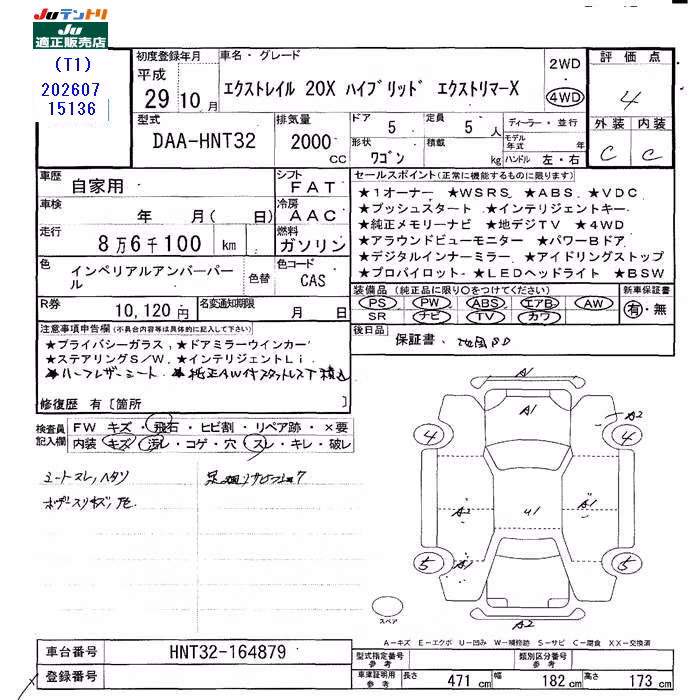 Juテントリ
Ju
適正販売店
(T1)
202607
15136
初度登録年月
平成
29 10 月
車名・グレード
エクストレイル 20X ハイブリッド エクストリマーX
2WD
4WD
評価点
4
型式
DAA-HNT32
排気量
2000 CC
ドア 5
定員 5 人
形状 ワゴン
積載 kg
ディーラー・並行
モデル年式 年
ハンドル 左・右
外装 内装
C C
車歴 自家用
シフト FAT
車検 年 月( 日)
冷房 AAC
走行 8万6千100 km
燃料 ガソリン
色 インペリアルアンバーパール
色替
色コード CAS
R券 10,120円
名変通知期限 月 日
セールスポイント(正常に機能するものに限ります)
★1オーナー ★WSRS ★ABS ★VDC
★プッシュスタート ★インテリジェントキー
★純正メモリーナビ ★地デジTV ★4WD
★アラウンドビューモニター ★パワーBドア
★デジタルインナーミラー ★アイドリングストップ
★プロパイロット ★LEDヘッドライト ★BSW
装備品(純正品に限り○をつけてください)
PS PW ABS エアB AW
SR ナビ TV カワ
新車保証書
有・無
後日品
保証書、
注意事項申告欄(不具合内容等は具体的に記入して下さい)
★プライバシーガラス ★ドアミラーウインカー
★ステアリングS/W ★インテリジェントLi
★ハーフレザーシート ★純正AW付スタッドレスT積込
修復歴 有[箇所 ]
検査員記入欄
FW キズ・飛石・ヒビ割・リペア跡・×要
内装 キズ・汚レ・コゲ・穴・スレ・キレ・破レ
シートスレ、ヘタリ
A1
A1
A2
4
4
A2
A1
U1
A1
5
5
A2
スペア
A-キズ E-エクボ U-凹み W-補修跡 S-サビ C-腐食 XX-交換済
車台番号 HNT32-164879
登録番号
型式指定番号 参考
類別区分番号 参考
車庫証明用 参考
長さ 471 cm
幅 182 cm
高さ 173 cm